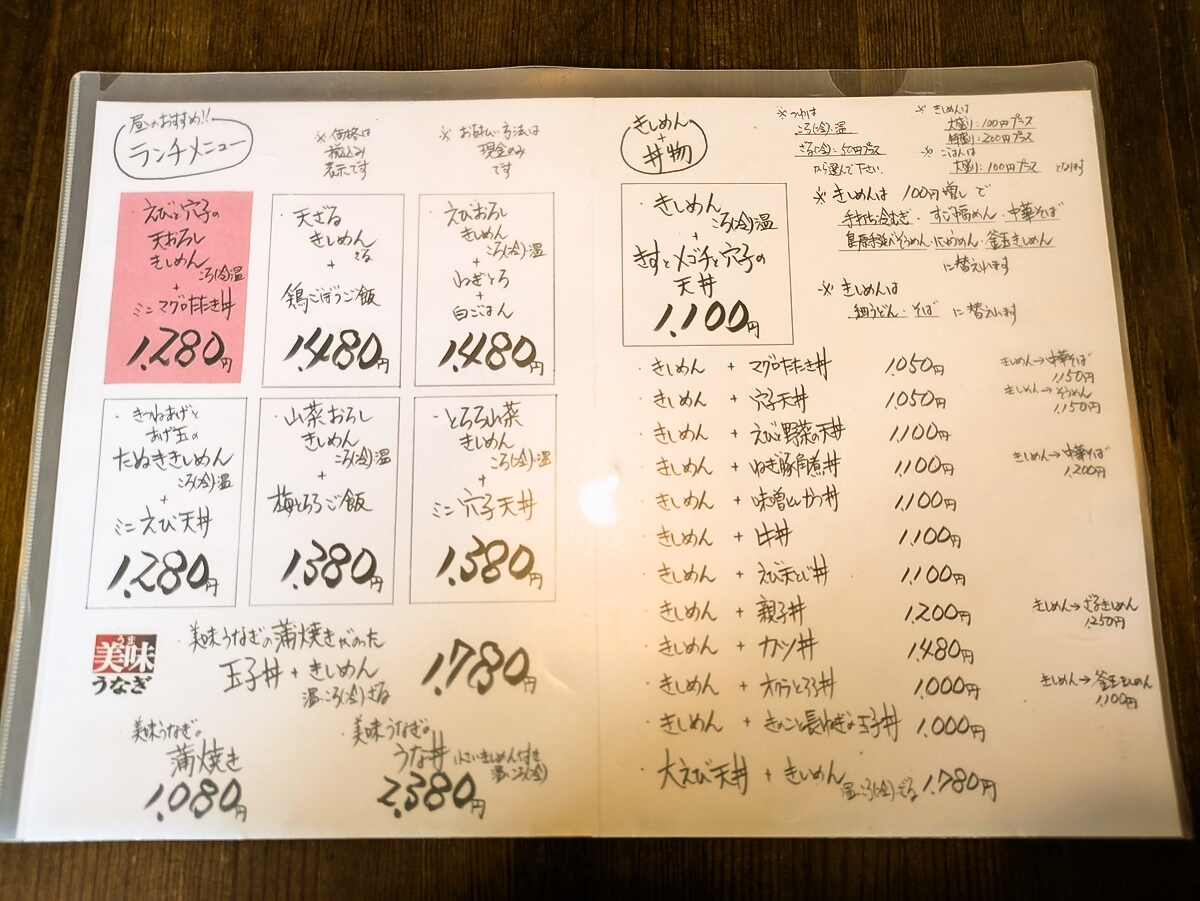 昼のおすすめ!!
ランチメニュー
※価格は
税込み
表示です
※お支払い方法は
現金のみ
です
・えびと穴子の
天おろし
きしめん
ころ(冷)・温
+
ミニマグロたたき丼
1,280円
・天ざる
きしめん
ざる
+
鶏ごぼうご飯
1,480円
・えびおろし
きしめん
ころ(冷)・温
+
ねぎとろ
+
白ごはん
1,480円
・きつねあげと
あげ玉の
たぬききしめん
ころ(冷)・温
+
ミニえび天丼
1,280円
・山菜おろし
きしめん
ころ(冷)・温
+
梅とろろご飯
1,380円
・とろろ山菜
きしめん
ころ(冷)・温
+
ミニ穴子天丼
1,380円
うま
美味
うなぎ
・美味うなぎの蒲焼きがのった
玉子丼+きしめん
温・ころ(冷)・ざる
1,780円
・美味うなぎの
蒲焼き
1,080円
・美味うなぎの
うな丼
小さいきしめんつき
温・ころ(冷)
2,380円
きしめん
+
丼物
※つゆは
ころ(冷)・温
ざる(冷):50円プラス
から選んで下さい
※きしめんは
大盛り:100円プラス
特盛り:200円プラス
※ごはんは
大盛り:100円プラス となります
・きしめん
ころ(冷)・温
+
きすとメゴチと穴子の
天丼
1,100円
※きしめんは 100円増しで
手打ち冷むぎ・すご幅めん・中華そば
島原手延べそうめん・にゅうめん・釜玉きしめん
に替えれます
※きしめんは
細うどん・そば に替えれます
・きしめん + マグロたたき丼 1,050円
きしめん→中華そば
1,150円
・きしめん + 穴子天丼 1,050円
きしめん→そうめん
1,150円
・きしめん + えびと野菜の天丼 1,100円
・きしめん + ねぎ豚角煮丼 1,100円
きしめん→中華そば
1,200円
・きしめん + 味噌とんかつ丼 1,100円
・きしめん + 牛丼 1,100円
・きしめん + えび天とじ丼 1,100円
・きしめん + 親子丼 1,200円
きしめん→ざるきしめん
1,250円
・きしめん + カツ丼 1,480円
・きしめん + オクラとろろ丼 1,000円
きしめん→釜玉きしめん
1,100円
・きしめん + きのこと長ねぎの玉子丼 1,000円
・大えび天丼 + きしめん 温・ころ(冷)・ざる 1,780円